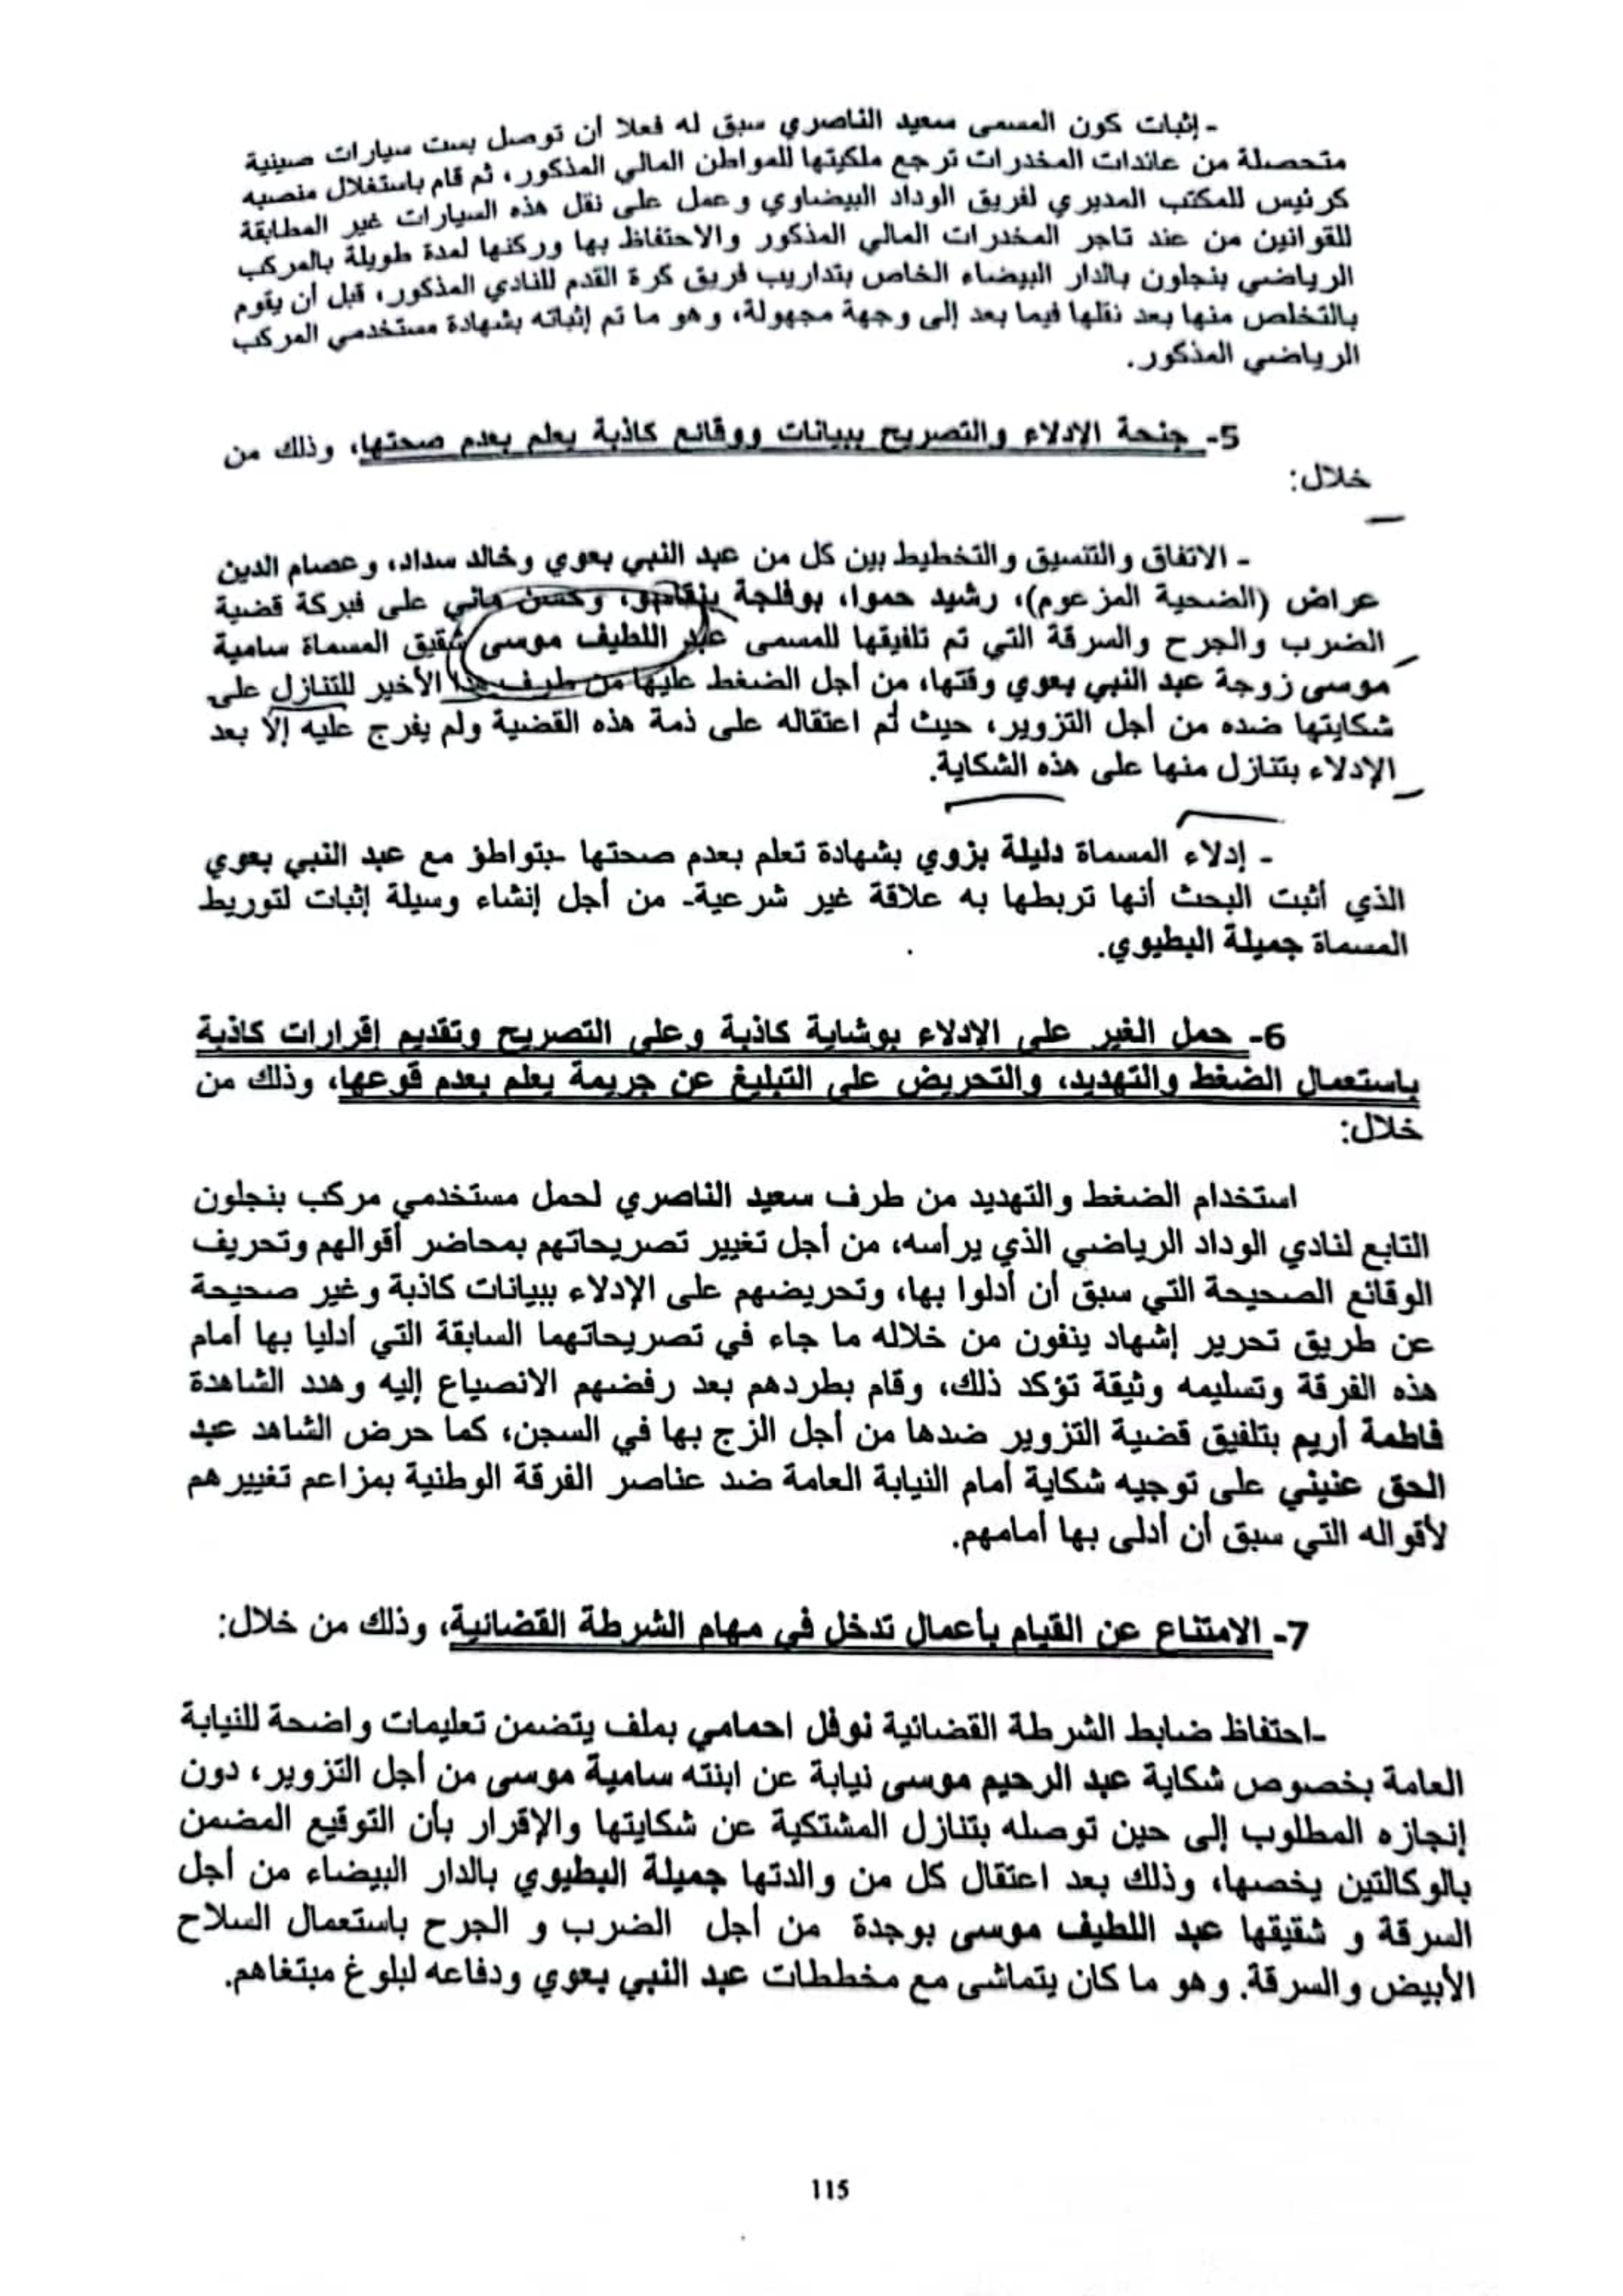 - إثبات كون المسمى سعيد الناصري سبق له فعلا أن توصل بست سيارات صينية
متحصلة من عائدات المخدرات ترجع ملكيتها للمواطن المالي المذكور، ثم قام باستغلال منصبه
كرئيس للمكتب المديري لفريق الوداد البيضاوي وعمل على نقل هذه السيارات غير المطابقة
للقوانين من عند تاجر المخدرات المالي المذكور والاحتفاظ بها وركنها لمدة طويلة بالمركب
الرياضي بنجلون بالدار البيضاء الخاص بتداريب فريق كرة القدم للنادي المذكور، قبل أن يقوم
بالتخلص منها بعد نقلها فيما بعد إلى وجهة مجهولة، وهو ما تم إثباته بشهادة مستخدمي المركب
الرياضي المذكور.
5- جنحة الإدلاء والتصريح ببيانات ووقائع كاذبة يعلم بعدم صحتها، وذلك من
خلال:
- الاتفاق والتنسيق والتخطيط بين كل من عبد النبي بعوي وخالد سداد، وعصام الدين
عراض (الضحية المزعوم)، رشيد حموا، بوفلجة وحسن ماني على فبركة قضية
الضرب والجرح والسرقة التي تم تلفيقها للمسمى عبد اللطيف موسى شقيق المسماة سامية
موسى زوجة عبد النبي بعوي وقتها، من أجل الضغط عليها من طرف هذا الأخير للتنازل على
شكايتها ضده من أجل التزوير، حيث تم اعتقاله على ذمة هذه القضية ولم يفرج عليه إلا بعد
الإدلاء بتنازل منها على هذه الشكاية.
- إدلاء المسماة دليلة بزوي بشهادة تعلم بعدم صحتها -بتواطؤ مع عبد النبي بعوي
الذي أثبت البحث أنها تربطها به علاقة غير شرعية- من أجل إنشاء وسيلة إثبات لتوريط
المسماة جميلة البطيوي.
6- حمل الغير على الإدلاء بوشاية كاذبة وعلى التصريح وتقديم إقرارات كاذبة
باستعمال الضغط والتهديد، والتحريض على التبليغ عن جريمة يعلم بعدم قوعها، وذلك من
خلال:
استخدام الضغط والتهديد من طرف سعيد الناصري لحمل مستخدمي مركب بنجلون
التابع لنادي الوداد الرياضي الذي يرأسه، من أجل تغيير تصريحاتهم بمحاضر أقوالهم وتحريف
الوقائع الصحيحة التي سبق أن أدلوا بها، وتحريضهم على الإدلاء ببيانات كاذبة وغير صحيحة
عن طريق تحرير إشهاد ينفون من خلاله ما جاء في تصريحاتهما السابقة التي أدليا بها أمام
هذه الفرقة وتسليمه وثيقة تؤكد ذلك، وقام بطردهم بعد رفضهم الانصياع إليه وهدد الشاهدة
فاطمة أريم بتلفيق قضية التزوير ضدها من أجل الزج بها في السجن، كما حرض الشاهد عبد
الحق عنيني على توجيه شكاية أمام النيابة العامة ضد عناصر الفرقة الوطنية بمزاعم تغييرهم
لأقواله التي سبق أن أدلى بها أمامهم.
7- الامتناع عن القيام بأعمال تدخل في مهام الشرطة القضائية، وذلك من خلال:
-احتفاظ ضابط الشرطة القضائية نوفل احمامي بملف يتضمن تعليمات واضحة للنيابة
العامة بخصوص شكاية عبد الرحيم موسى نيابة عن ابنته سامية موسى من أجل التزوير، دون
إنجازه المطلوب إلى حين توصله بتنازل المشتكية عن شكايتها والإقرار بأن التوقيع المضمن
بالوكالتين يخصها، وذلك بعد اعتقال كل من والدتها جميلة البطيوي بالدار البيضاء من أجل
السرقة و شقيقها عبد اللطيف موسى بوجدة من أجل الضرب و الجرح باستعمال السلاح
الأبيض والسرقة. وهو ما كان يتماشى مع مخططات عبد النبي بعوي ودفاعه لبلوغ مبتغاهم.
115